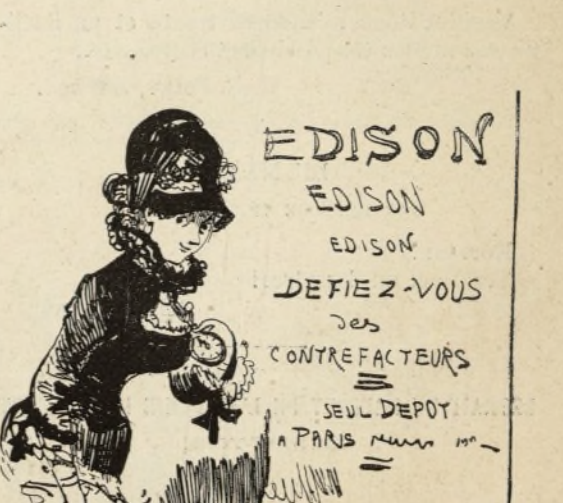 EDISON
EDISON
EDISON
DEFIEZ-VOUS
des
CONTREFACTEURS
SEUL DEPOT
A PARIS